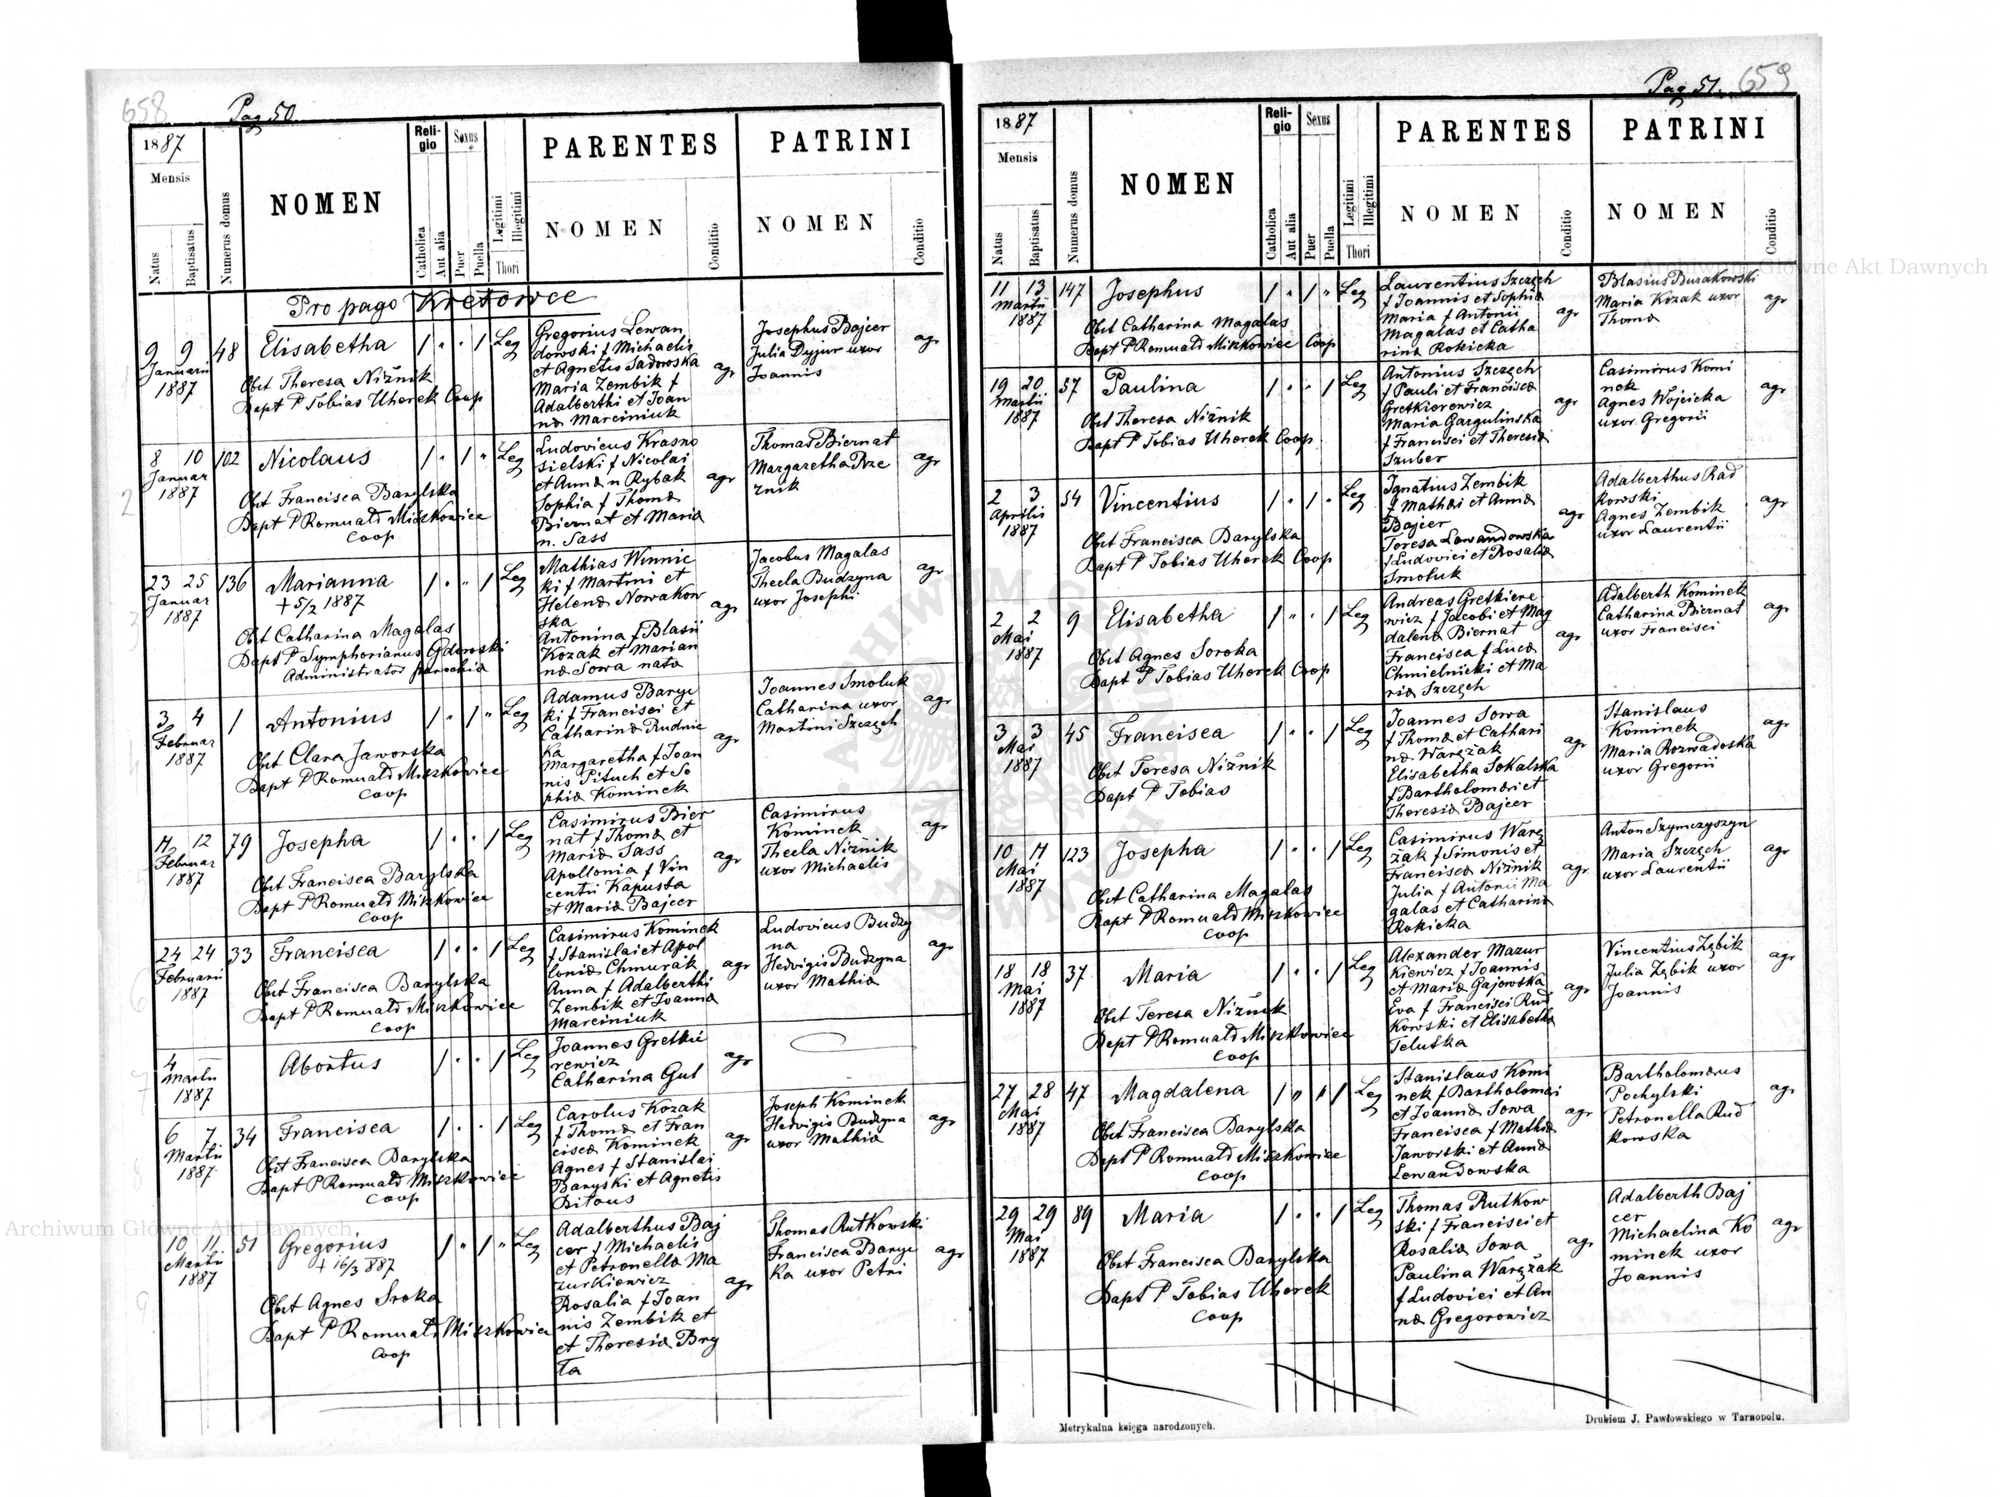 658 Pag 50.
1887
Mensis
Natus
Baptisatus
Numerus domus
NOMEN
Religio
Catholica
Aut alia
Sexus
Puer
Puella
Legitimi
Illegitimi
Thori
PARENTES
NOMEN
Conditio
PATRINI
NOMEN
Conditio
Pro pago Kretowce
9 9 48 Elisabetha 1 " " 1 Leg
Januarii
1887
Obst Theresa Niżnik
Bapt P Tobias Uherek Coop
Gregorius Lewan
dowski f Michaelis
et Agnetis Sadowska
Maria Zembik f
Adalberthi et Joan
na Marciniuk
agr
Josephus Bajcer
Julia Dyjur uxor
Joannis
agr
8 10 102 Nicolaus 1 " 1 " Leg
Januar
1887
Obst Francisca Barylska
Bapt P Romuald Miszkowicz
Coop
Ludovicus Krasno
sielski f Nicolai
et Anna n Rybak
Sophia f Thoma
Biernat et Maria
n. Sass
agr
Thomas Biernat
Margaretha
znik
agr
23 25 136 Marianna 1 " " 1 Leg
Januar
1887
+ 5/2 1887
Obst Catharina Magalas
Bapt P Symphorianus Gdowski
Administrator parochia
Mathias Winnic
ki f Martini et
Helena Nowakow
ska
Antonina f Blasii
Kozak et Marian
na Sowa nata
agr
Jacobus Magalas
Thecla Budzyna
uxor Josephi
agr
3 4 1 Antonius 1 " 1 " Leg
Februar
1887
Obst Clara Jaworska
Bapt P Romuald Miszkowicz
Coop
Adamus Baryc
ki f Francisci et
Catharina Rudnic
ka
Margaretha f Joan
nis Pituch et So
phia Kominek
agr
Joannes Smoluk
Catharina uxor
Martini Szczęch
agr
11 12 79 Josepha 1 " " 1 Leg
Februar
1887
Obst Francisca Barylska
Bapt P Romuald Miszkowicz
Coop
Casimirus Bier
nat f Thoma et
Maria Sass
Apollonia f Vin
centii Kapusta
et Maria Bajcer
agr
Casimirus
Kominek
Thecla Niżnik
uxor Michaelis
agr
24 24 33 Francisca 1 " " 1 Leg
Februarii
1887
Obst Francisca Barylska
Bapt P Romuald Miszkowicz
Coop
Casimirus Kominek
f Stanislai et Apol
lonia Chmurak
Anna f Adalberthi
Zembik et Joanna
Marciniuk
agr
Ludovicus Budzy
na
Hedvigis Budzyna
uxor Mathia
agr
4 Abortus 1 " " 1 Leg
Martii
1887
Joannes Gretkie
rewicz
Catharina Gul
agr
6 7 34 Francisca 1 " " 1 Leg
Martii
1887
Obst Francisca Barylska
Bapt P Romuald Miszkowicz
Coop
Carolus Kozak
f Thoma et Fran
cisca Kominek
Agnes f Stanislai
Baryski et Agnetis
Bitous
agr
Joseph Kominek
Hedvigis Budzyna
uxor Mathia
agr
10 11 51 Gregorius 1 " 1 " Leg
Martii
1887
+ 16/3 887
Obst Agnes Sroka
Bapt P Romuald Miszkowicz
Coop
Adalberthus Baj
cer f Michaelis
et Petronella Ma
zurkiewicz
Rosalia f Joan
nis Zembik et
et Theresia Bry
ła
agr
Thomas Rutkowski
Francisca Baryc
ka uxor Petri
agr
Pag 51. 659
1887
Mensis
Natus
Baptisatus
Numerus domus
NOMEN
Religio
Catholica
Aut alia
Sexus
Puer
Puella
Legitimi
Illegitimi
Thori
PARENTES
NOMEN
Conditio
PATRINI
NOMEN
Conditio
11 13 147 Josephus 1 " 1 " Leg
Martii
1887
Obst Catharina Magalas
Bapt P Romuald Miszkowicz Coop
Laurentius Szczęch
f Joannis et Sophia
Maria f Antonii
Magalas et Catha
rina Rokicka
agr
Blasius Burakowski
Maria Kozak uxor
Thoma
agr
19 20 57 Paulina 1 " " 1 Leg
Martii
1887
Obst Theresa Niżnik
Bapt P Tobias Uherek Coop
Antonius Szczęch
f Pauli et Francisca
Gretkierewicz
Maria Gargulinska
f Francisci et Theresia
Szuber
agr
Casimirus Komi
nek
Agnes Wojcicka
uxor Gregorii
agr
2 3 54 Vincentius 1 " 1 " Leg
Aprilis
1887
Obst Francisca Barylska
Bapt P Tobias Uherek Coop
Ignatius Zembik
f Mathai et Anna
Bajcer
Teresa Lewandowska
f Ludovici et Rosalia
Smoluk
agr
Adalberthus Rad
kowski
Agnes Zembik
uxor Laurentii
agr
2 2 9 Elisabetha 1 " " 1 Leg
Mai
1887
Obst Agnes Soroka
Bapt P Tobias Uherek Coop
Andreas Gretkiere
wicz f Jacobi et Mag
dalena Biernat
Francisca f Luca
Chmielnicki et Ma
ria Szczęch
agr
Adalberth Kominek
Catharina Biernat
uxor Francisci
agr
3 3 45 Francisca 1 " " 1 Leg
Mai
1887
Obst Teresa Niżnik
Bapt P Tobias
Joannes Sowa
f Thoma et Cathari
na Waręzak
Elisabetha Sokalska
f Bartholomai et
Theresia Bajcer
agr
Stanislaus
Kominek
Maria Rozwadoska
uxor Gregorii
agr
10 11 123 Josepha 1 " " 1 Leg
Mai
1887
Obst Catharina Magalas
Bapt P Romuald Miszkowicz
Coop
Casimirus Warę
żak f Simonis et
Francisca Niżnik
Julia f Antonii Ma
galas et Catharina
Rokicka
agr
Anton Szymczyszyn
Maria Szczęch
uxor Laurentii
agr
18 18 37 Maria 1 " " 1 Leg
Mai
1887
Obst Teresa Niżnik
Bapt P Romuald Miszkowicz
Coop
Alexander Mazur
kiewicz f Joannis
et Maria Gajowska
Eva f Francisci Rud
kowski et Elisabetha
Teluska
agr
Vincentius Zębik
Julia Zębik uxor
Joannis
agr
27 28 47 Magdalena 1 " " 1 Leg
Mai
1887
Obst Francisca Barylska
Bapt P Romuald Miszkowicz
Coop
Stanislaus Komi
nek f Bartholomai
et Joanna Sowa
Francisca f Mathia
Jaworski et Anna
Lewandowska
agr
Bartholomaus
Pochylski
Petronella Rud
kowska
agr
29 29 89 Maria 1 " " 1 Leg
Mai
1887
Obst Francisca Barylska
Bapt P Tobias Uherek
Coop
Thomas Rutkow
ski f Francisci et
Rosalia Sowa
Paulina Waręzak
f Ludovici et An
na Gregorowicz
agr
Adalberth Baj
cer
Michaelina Ko
minek uxor
Joannis
agr
Metrykalna księga narodzonych.
Drukiem J. Pawłowskiego w Tarnopolu.
Archiwum Główne Akt Dawnych
Archiwum Główne Akt Dawnych